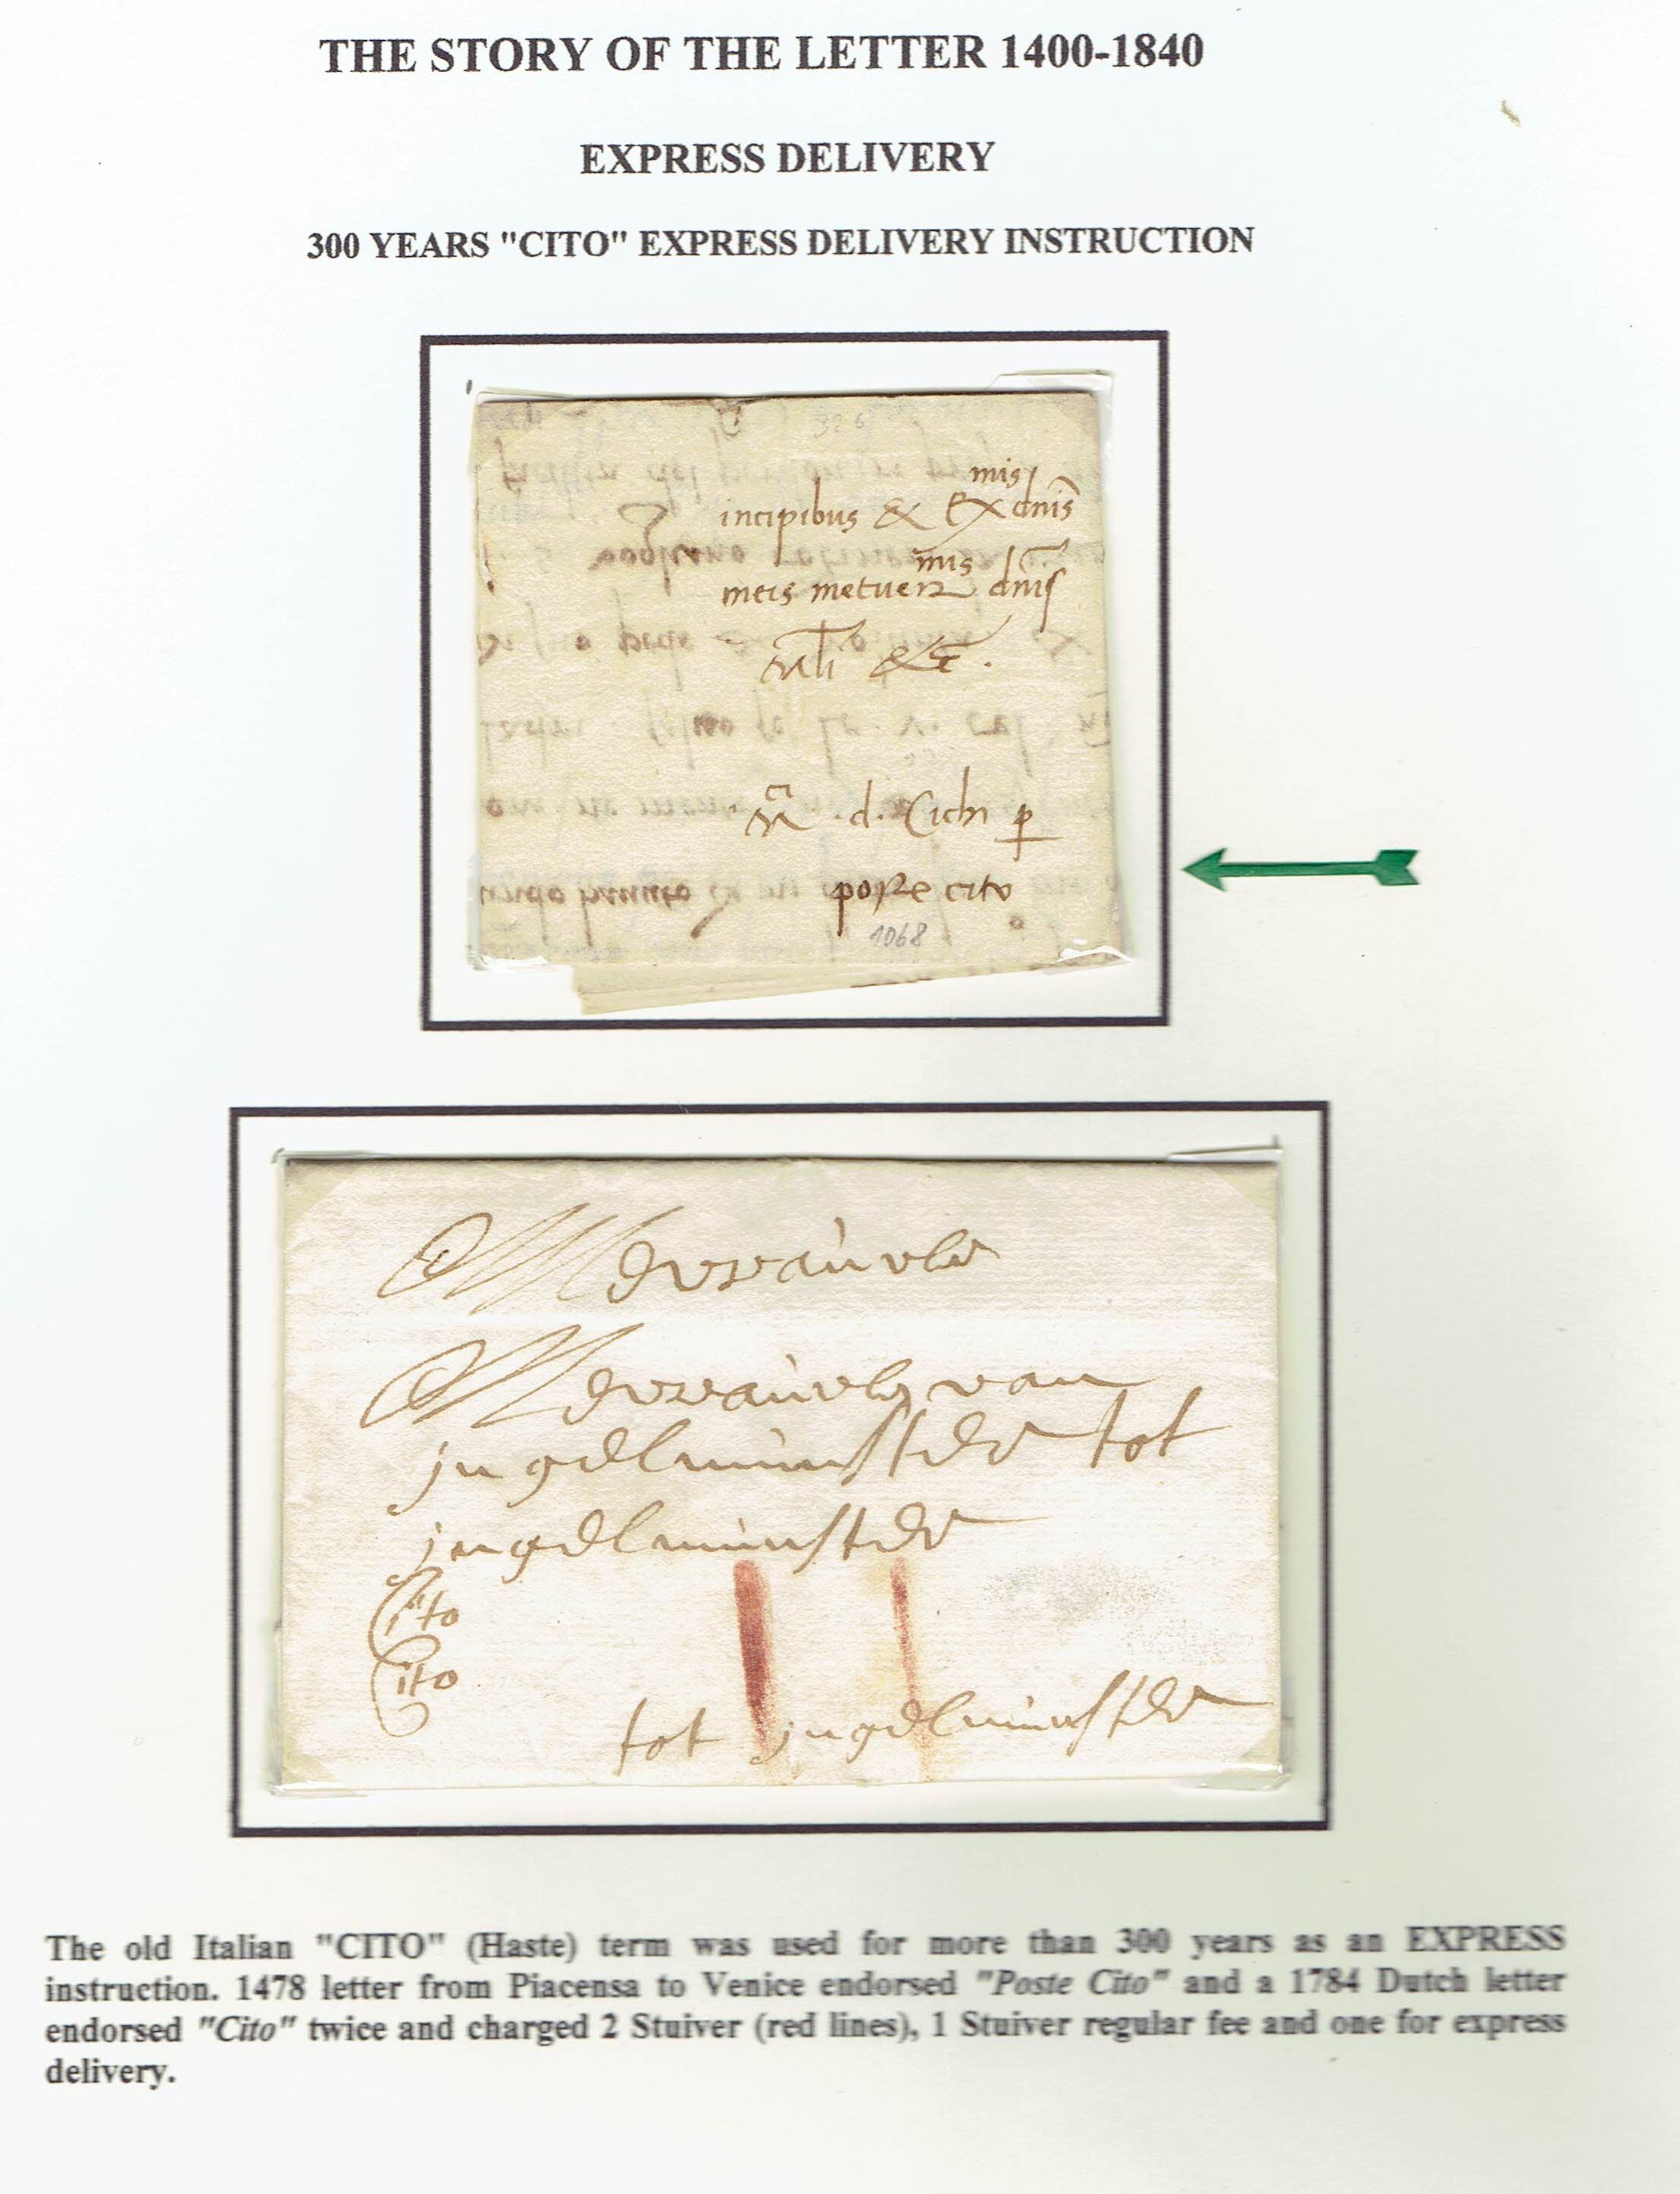 THE STORY OF THE LETTER 1400-1840
EXPRESS DELIVERY
300 YEARS "CITO" EXPRESS DELIVERY INSTRUCTION
326
mis
incipibus & Ex dnis
mis
meis metuen dnis
&c.
d. Cicho p
poste cito
1068
Mevrauwe
Mevrauwe van
jngelmunster tot
jngelmunster
Cito
Cito
tot jngelmunster
The old Italian "CITO" (Haste) term was used for more than 300 years as an EXPRESS
instruction. 1478 letter from Piacensa to Venice endorsed "Poste Cito" and a 1784 Dutch letter
endorsed "Cito" twice and charged 2 Stuiver (red lines), 1 Stuiver regular fee and one for express
delivery.